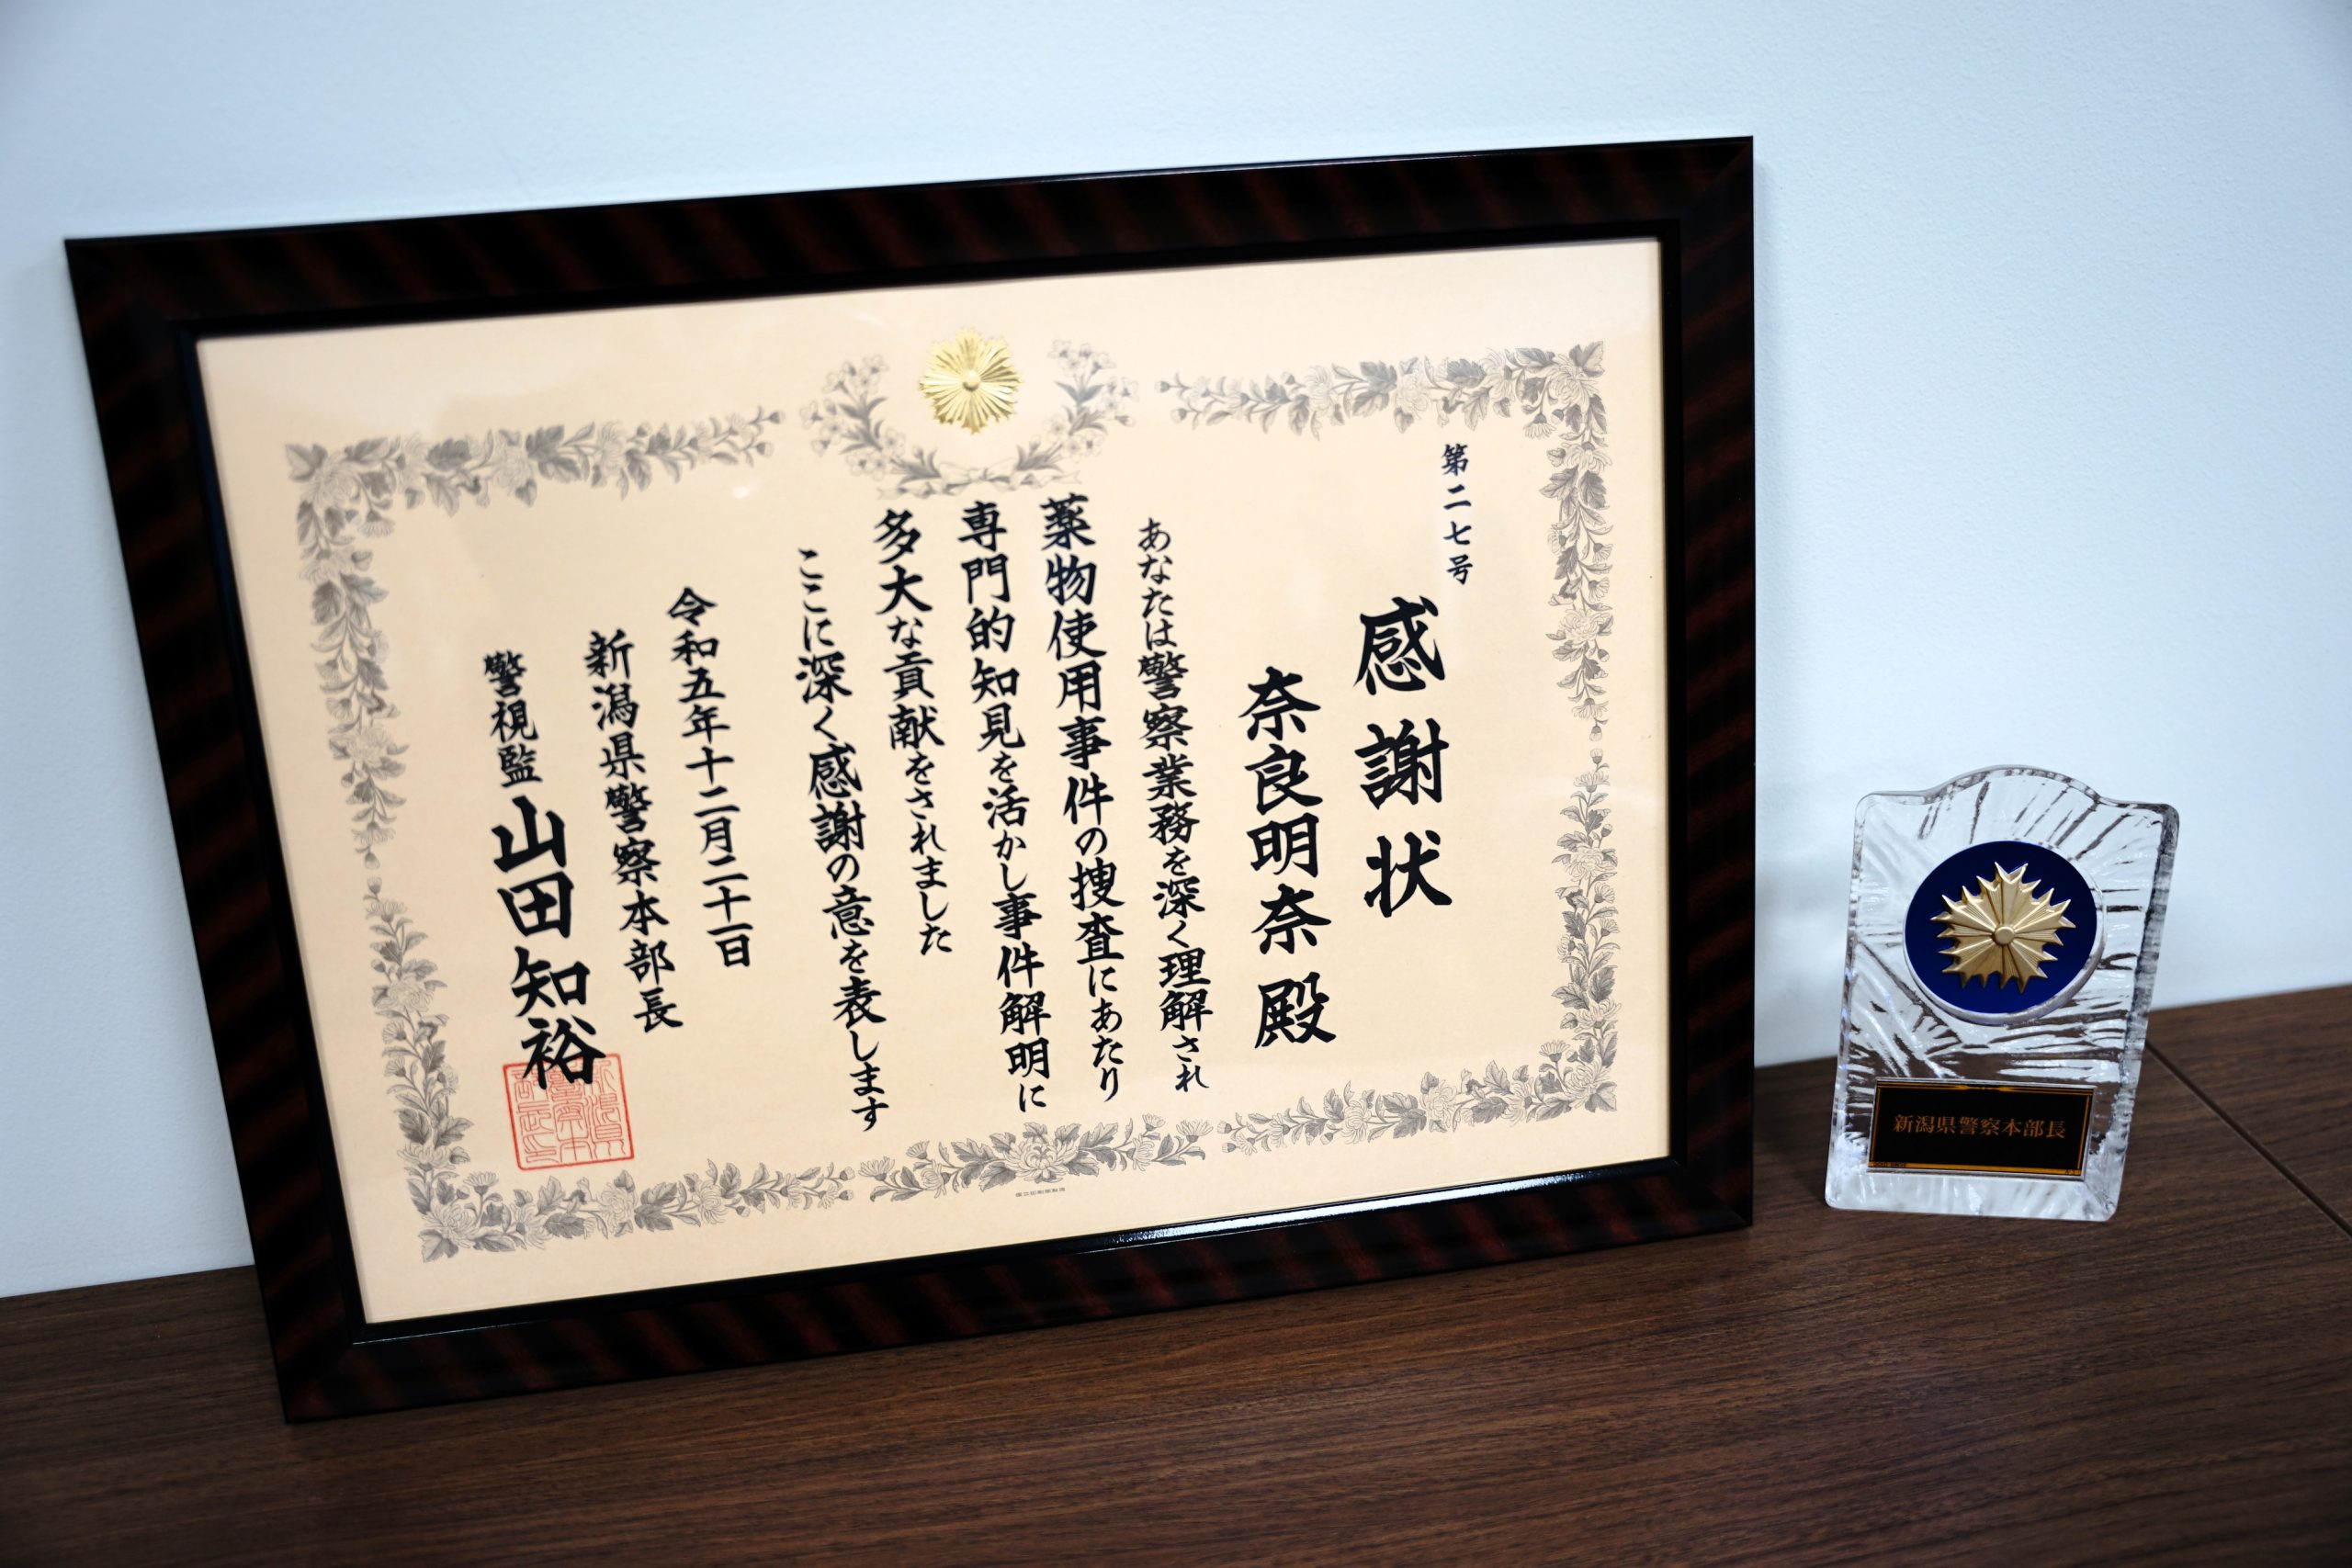 第二七号
感謝状
奈良明奈殿
あなたは警察業務を深く理解され
薬物使用事件の捜査にあたり
専門的知見を活かし事件解明に
多大な貢献をされました
ここに深く感謝の意を表します
令和五年十二月二十一日
新潟県警察本部長
警視監 山田知裕
新潟県警察本部長